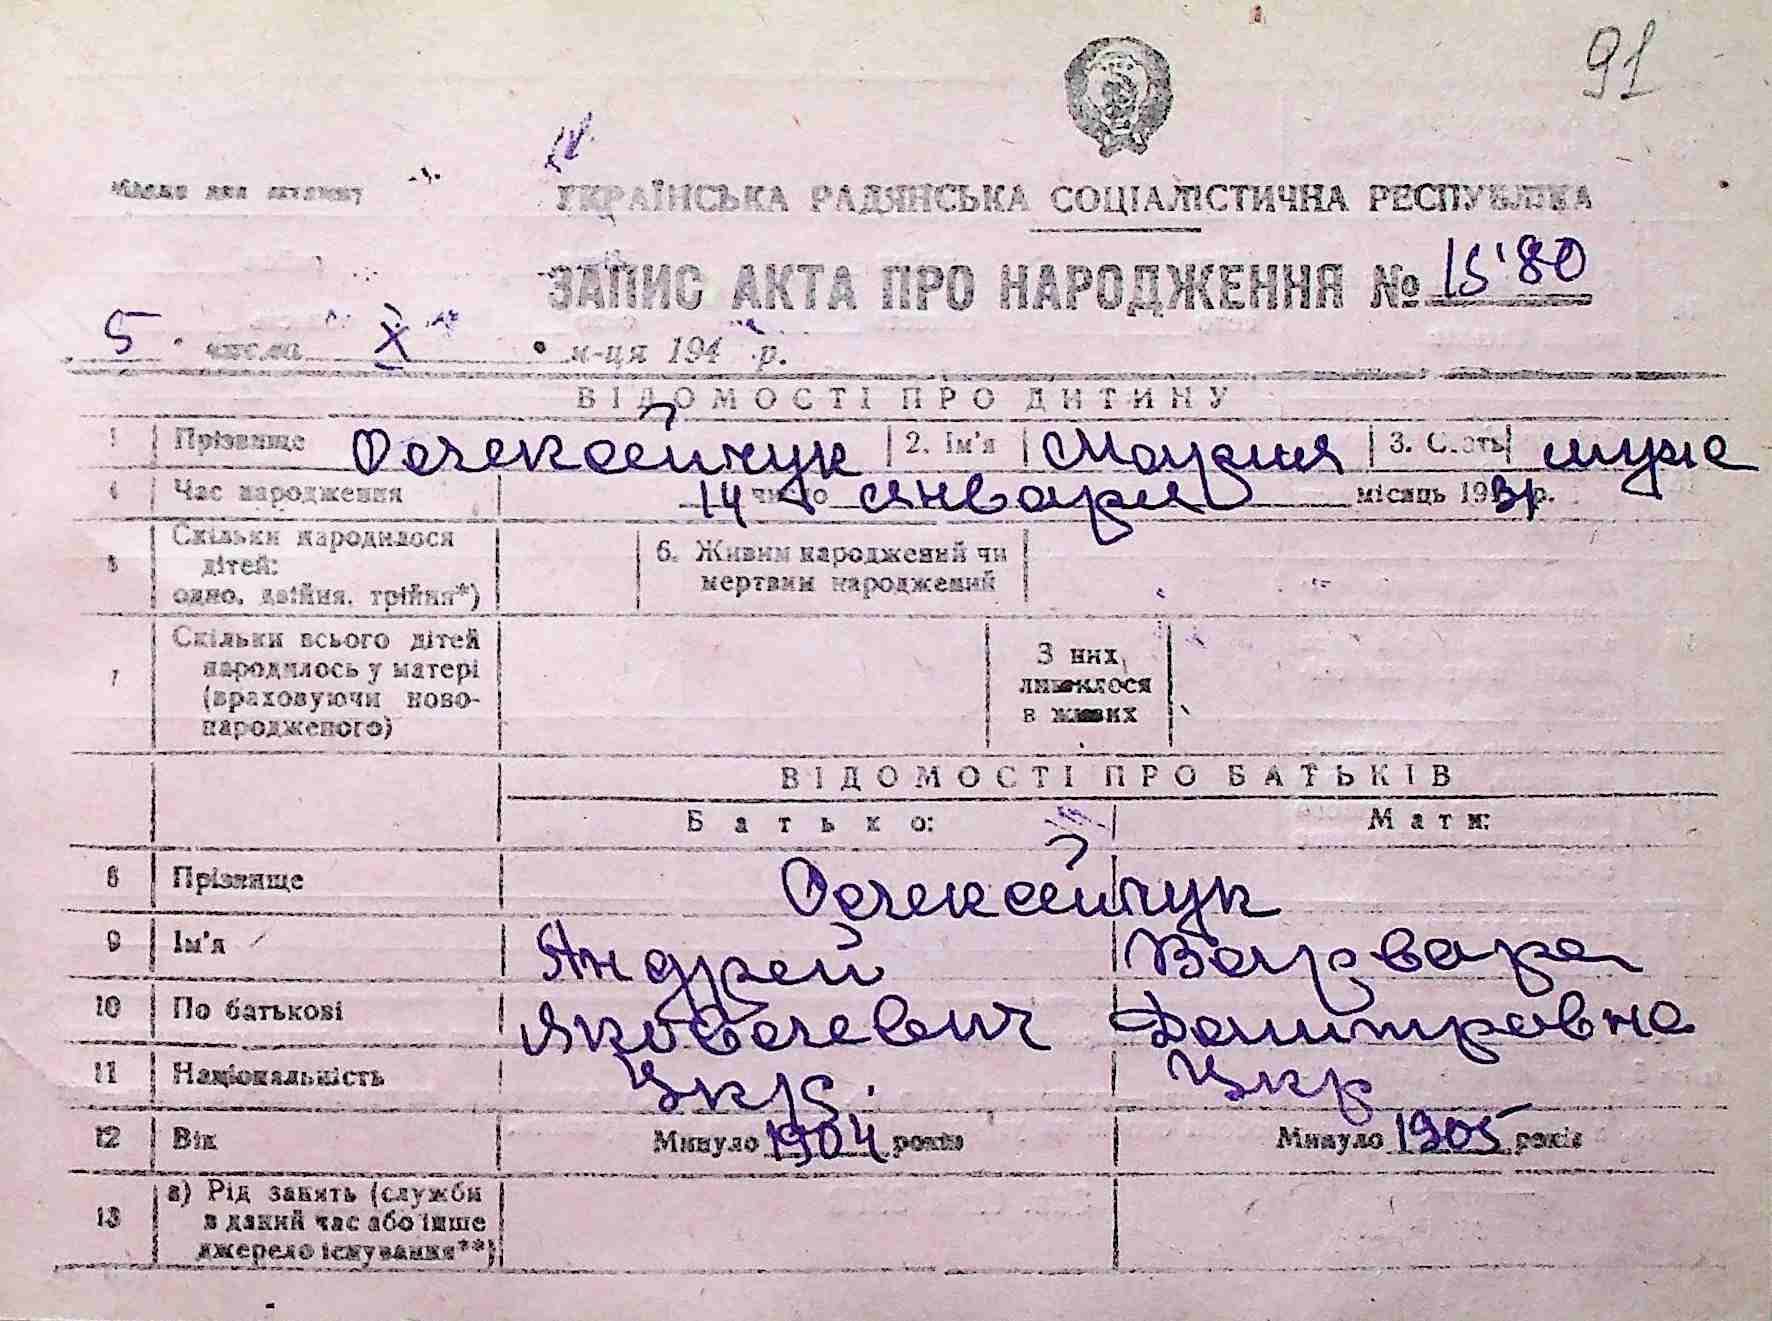 91
Місце для штампу
УКРАЇНСЬКА РАДЯНСЬКА СОЦІАЛІСТИЧНА РЕСПУБЛІКА
ЗАПИС АКТА ПРО НАРОДЖЕННЯ № 1580
5 числа X м-ця 194 р.
ВІДОМОСТІ ПРО ДИТИНУ
1 Прізвище Олексейчук 2. Ім'я Мария 3. Стать
4 Час народження 14 число января місяць 19 р.
5 Скільки народилося дітей: одно, двійня, трійня*) 6. Живим народжений чи мертвим народжений
7 Скільки всього дітей народилось у матері (враховуючи ново-народженого) З них лишилося в живих
ВІДОМОСТІ ПРО БАТЬКІВ
Батько: Мати:
8 Прізвище Олексейчук
9 Ім'я Андрей Варвара
10 По батькові Яковлевич Дмитровна
11 Національність Укр. Укр
12 Вік Минуло 1904 років Минуло 1905 років
13 а) Рід занять (служби в даний час або інше джерело існування**)